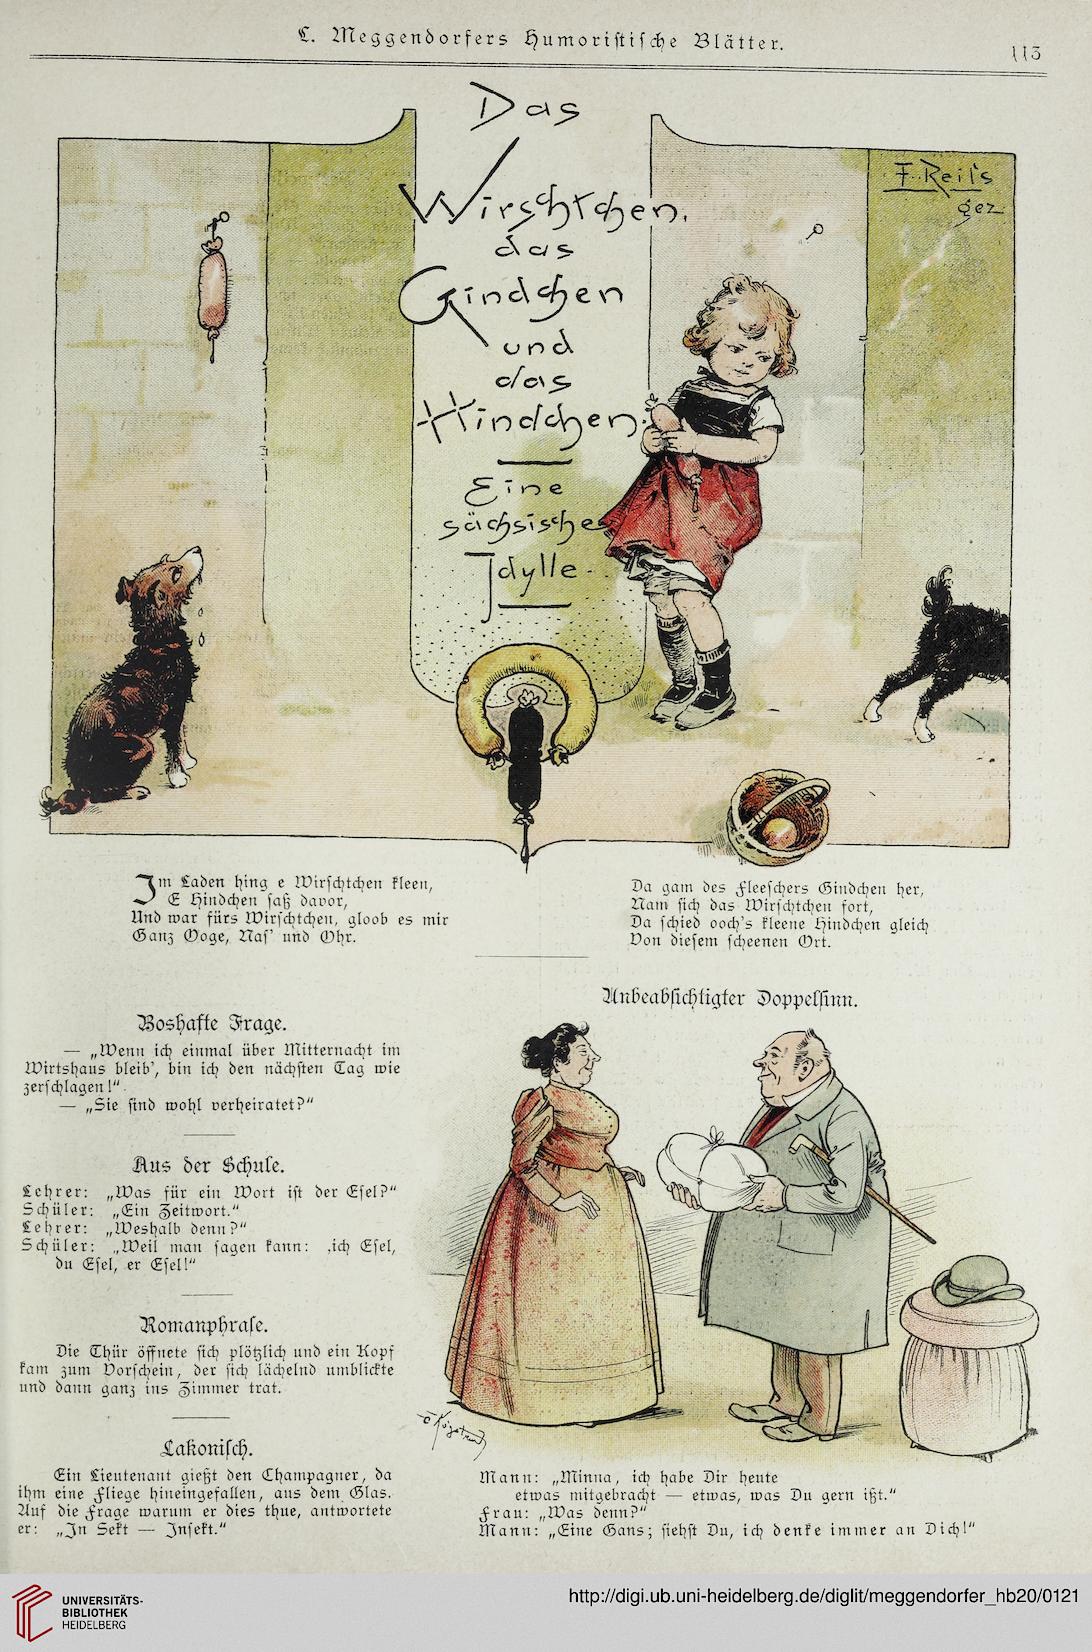 L. Meggendorfers Humoristische Blätter.
113
Das
Wirschtchen,
das
Gindchen
und
das
Hindchen.
Eine
sächsische
Idylle.
F. Reiß
gez
Im Laden hing e Wirschtchen kleen,
E Hindchen saß davor,
Und war fürs Wirschtchen, gloob es mir
Ganz Ooge, Nas' und Ohr.
Da gam des Fleeschers Gindchen her,
Nam sich das Wirschtchen fort,
Da schied ooch's kleene Hindchen gleich
Von diesem scheenen Ort.
Boshafte Frage.
— „Wenn ich einmal über Mitternacht im
Wirtshaus bleib', bin ich den nächsten Tag wie
zerschlagen!"
— „Sie sind wohl verheiratet?"
Aus der Schule.
Lehrer: „Was für ein Wort ist der Esel?"
Schüler: „Ein Zeitwort."
Lehrer: „Weshalb denn?"
Schüler: „Weil man sagen kann: ‚ich Esel,
du Esel, er Esel!"
Romanphrase.
Die Thür öffnete sich plötzlich und ein Kopf
kam zum Vorschein, der sich lächelnd umblickte
und dann ganz ins Zimmer trat.
Lakonisch.
Ein Lieutenant gießt den Champagner, da
ihm eine Fliege hineingefallen, aus dem Glas.
Auf die Frage warum er dies thue, antwortete
er: „In Sekt — Insekt."
Unbeabsichtigter Doppelsinn.
Mann: „Minna, ich habe Dir heute
etwas mitgebracht — etwas, was Du gern ißt."
Frau: „Was denn?"
Mann: „Eine Gans; siehst Du, ich denke immer an Dich!"
UNIVERSITÄTS-
BIBLIOTHEK
HEIDELBERG
http://digi.ub.uni-heidelberg.de/diglit/meggendorfer_hb20/0121